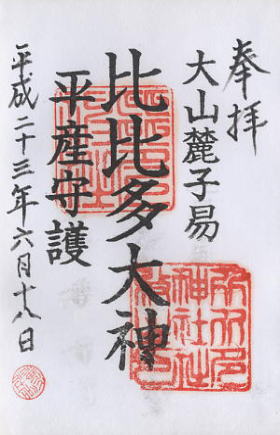 奉拝
大山麓子易
比比多大神
平産守護
平成二十三年六月十八日